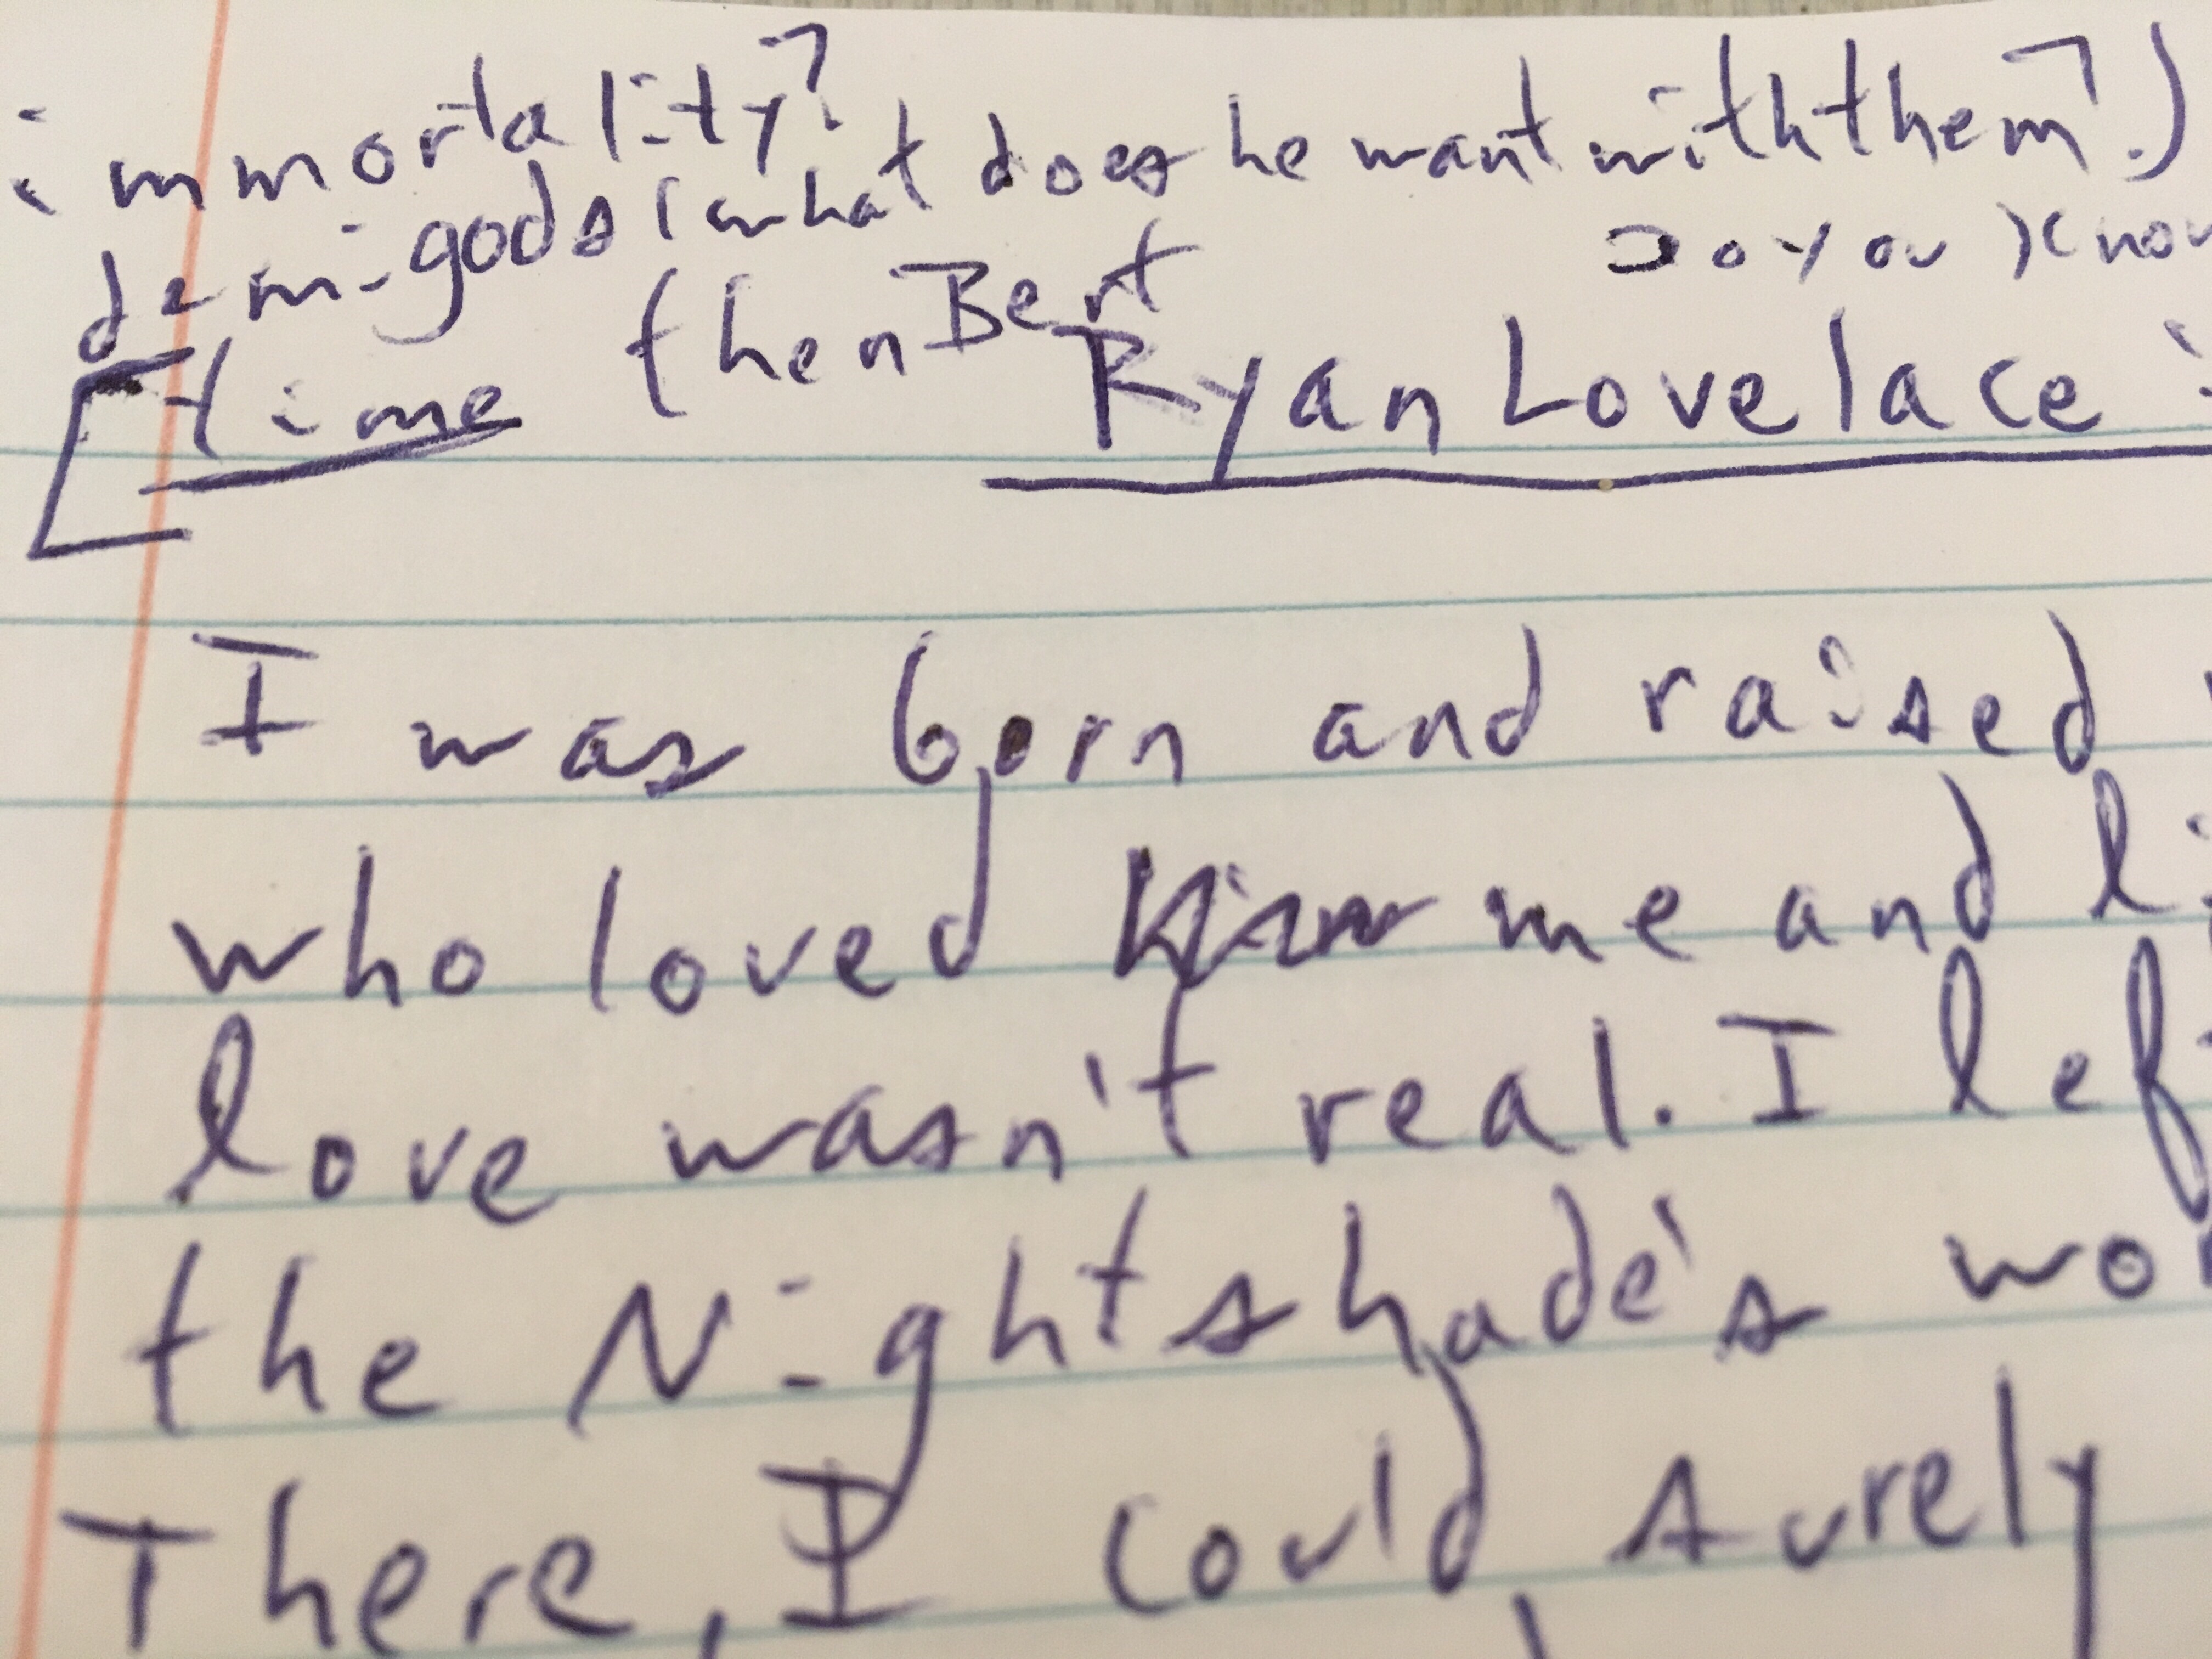 immortality?
demi-gods (what does he want with them?)
Do you know
time then Bert
Ryan Lovelace
I was born and raised
who loved me and
love wasn't real. I
the Nightshade's
There, I could surely